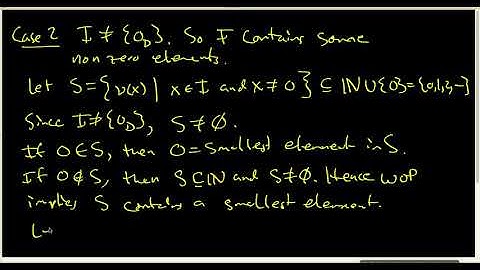 Case 2 I ≠ {0_D}. So I contains some
non zero elements.
Let S = {v(x) | x ∈ I and x ≠ 0} ⊆ ℕ ∪ {0} = {0,1,2,--}
Since I ≠ {0_D}, S ≠ ∅.
If 0 ∈ S, then 0 = smallest element in S.
If 0 ∉ S, then S ⊆ ℕ and S ≠ ∅. Hence WOP
implies S contains a smallest element.